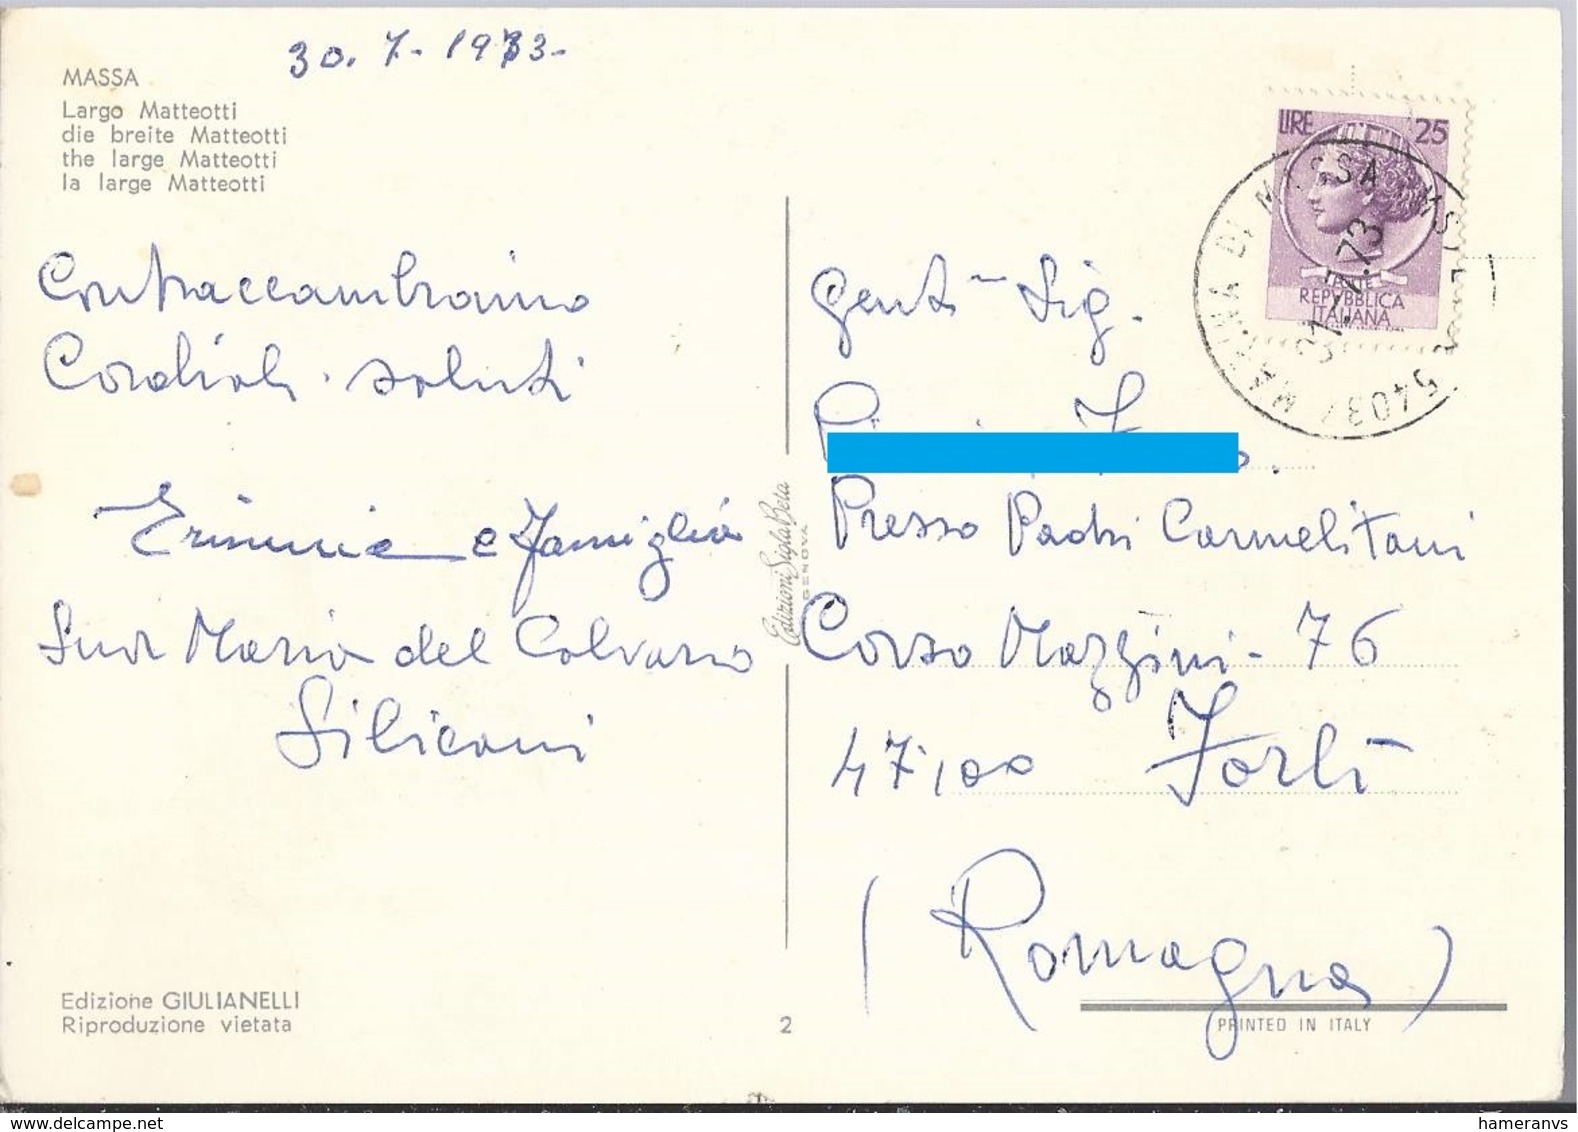 30. 7. 1973-
MASSA
Largo Matteotti
die breite Matteotti
the large Matteotti
la large Matteotti
LIRE 25
POSTE
REPVBBLICA
ITALIANA
54037 MARINA DI MASSA (MS)
31.-7.73
Contraccambiamo
Cordiali saluti
Erminia e famiglia
Suor Maria del Calvario
Siliconi
Edizioni Sigla Beta
GENOVA
Gent. Sig.
Presso Padri Carmelitani
Corso Mazzini - 76
47100 Forlì
(Romagna)
Edizione GIULIANELLI
Riproduzione vietata
2
PRINTED IN ITALY
delcampe.net
hameranvs